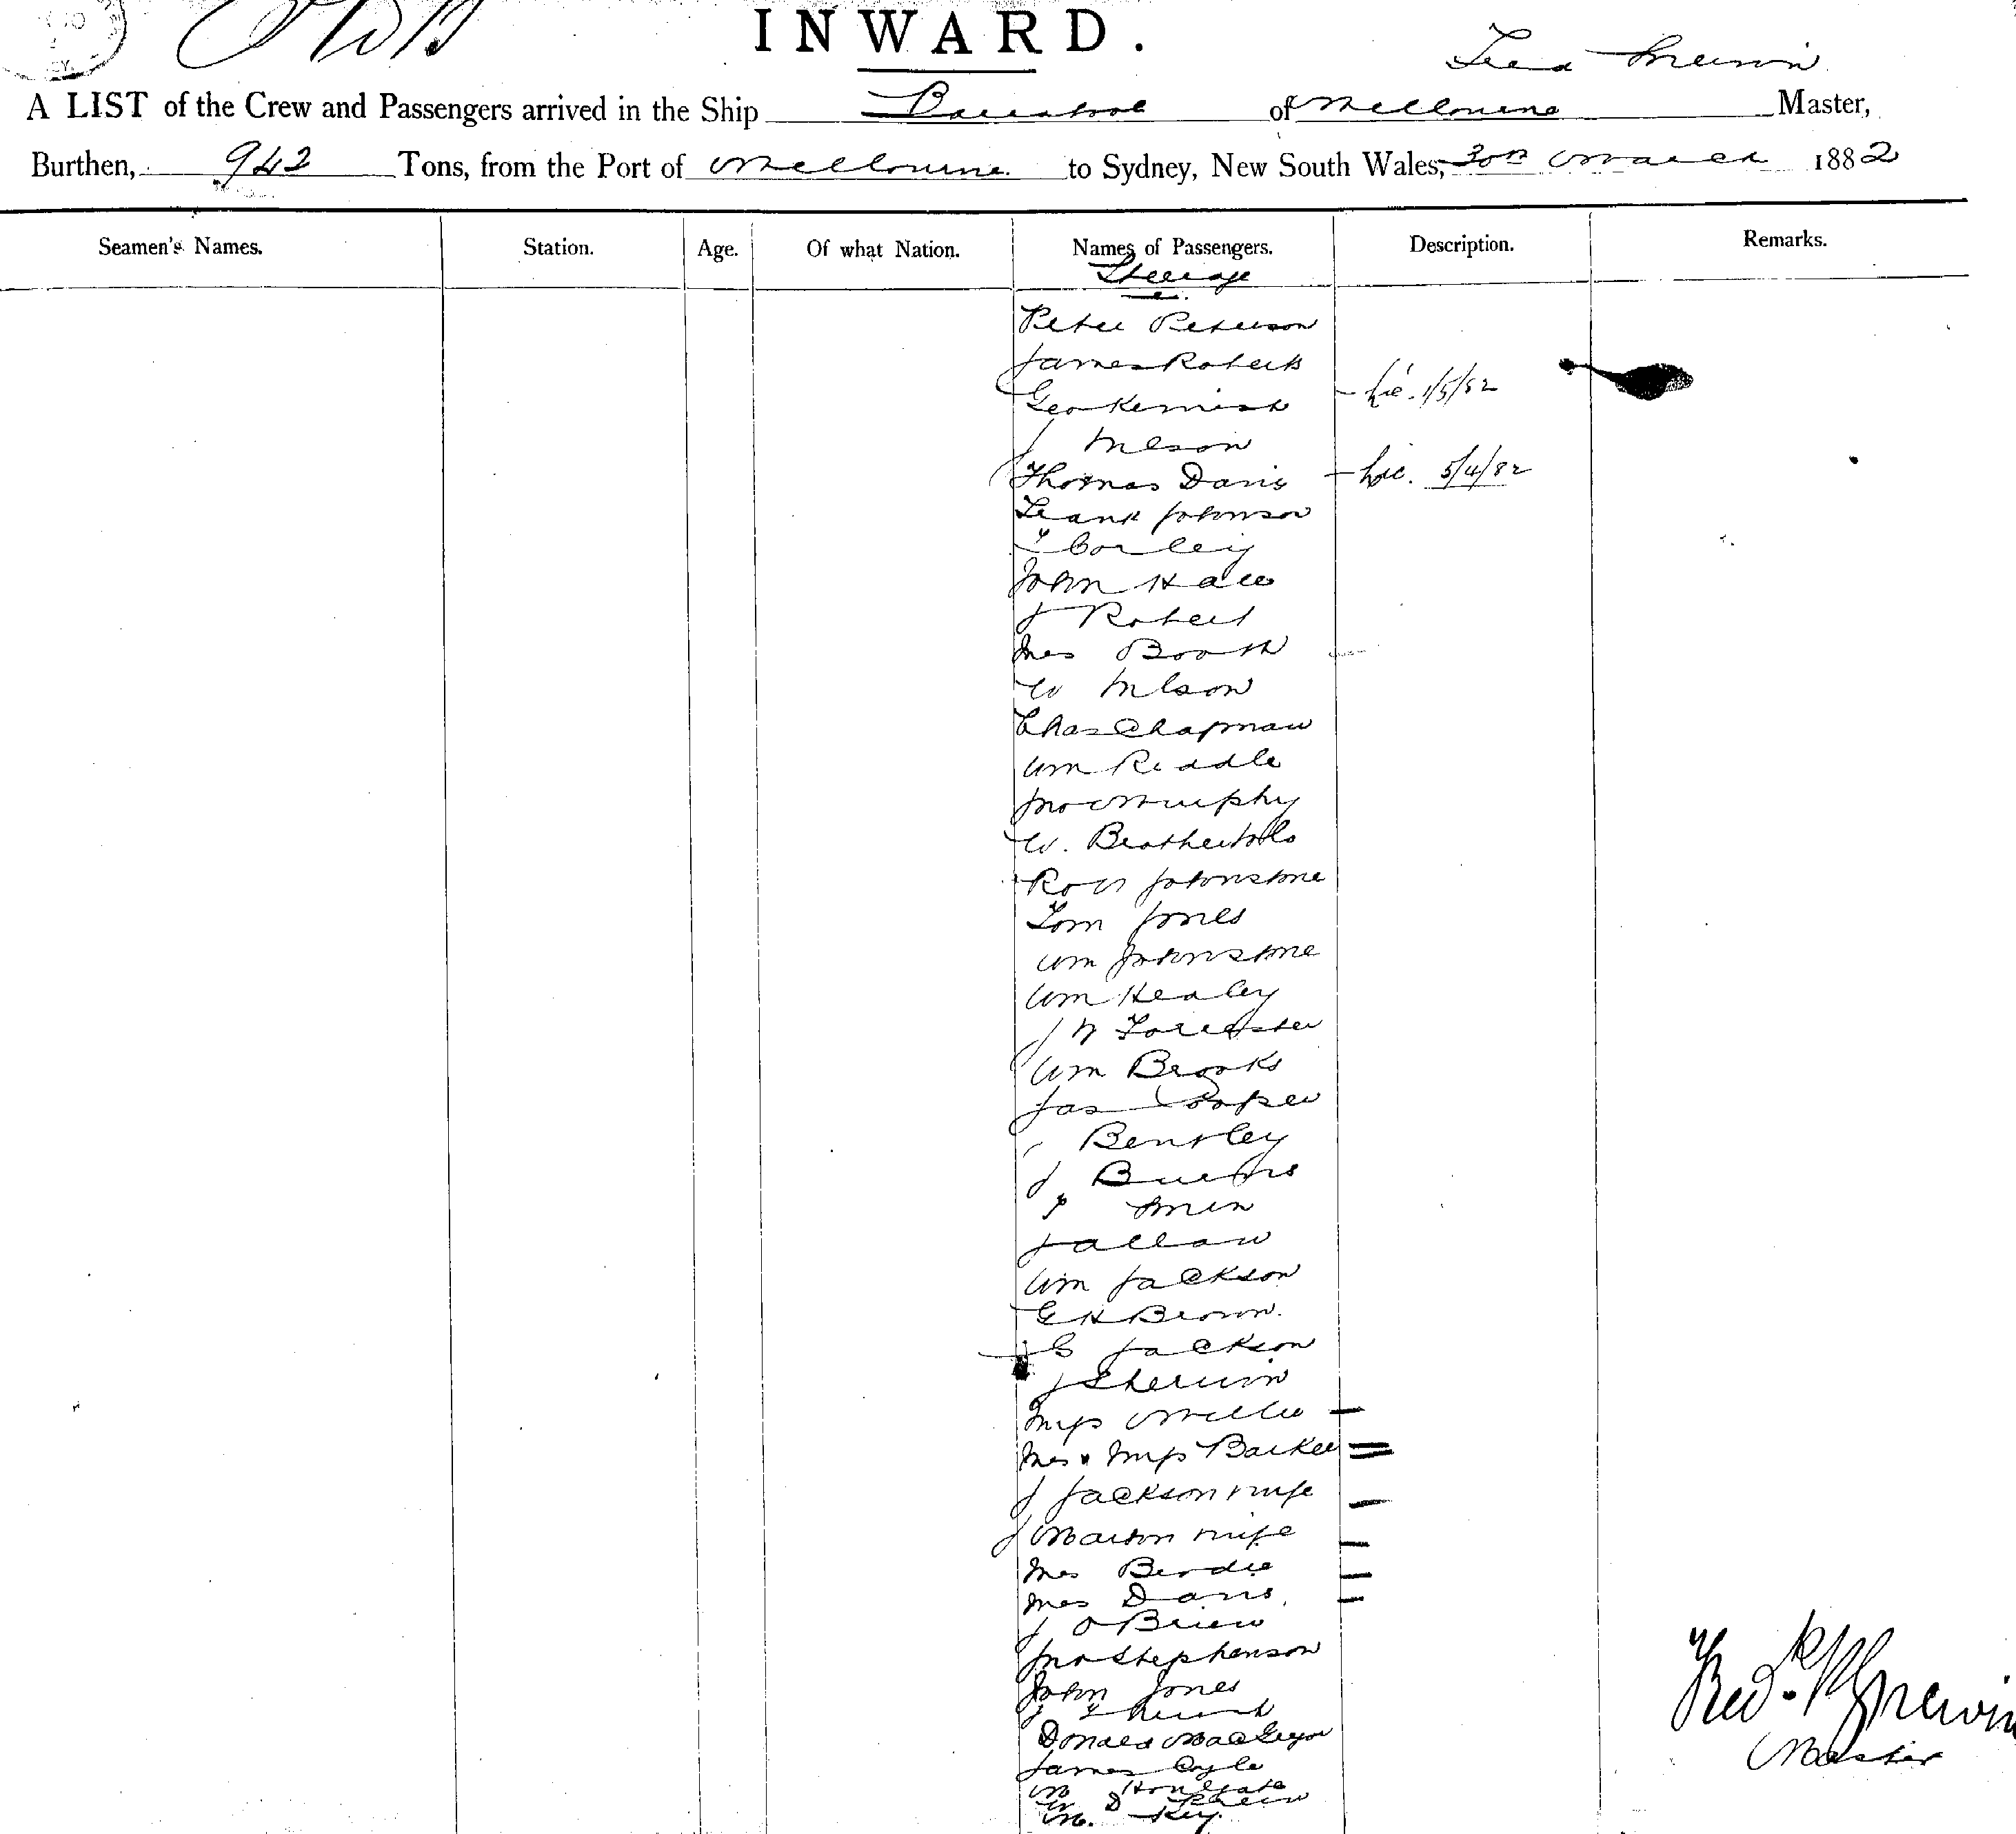 INWARD.
A LIST of the Crew and Passengers arrived in the Ship Barrabool of Melbourne Master,
Burthen, 942 Tons, from the Port of Melbourne to Sydney, New South Wales, 30th March 1882
Seamen's Names. Station. Age. Of what Nation. Names of Passengers. Description. Remarks.
Steerage
Peter Peterson
James Roberts
Geo Kemish 1/5/82
J Nelson
Thomas Davis 5/4/82
Frank Johnson
Corley
John Hall
J Robert
Mrs Booth
W Nelson
Chas Chapman
Wm Riddle
Jno Murphy
W. Brothertolo
Robt Johnstone
Tom Jones
Wm Johnstone
Wm Healey
J W Forrester
Wm Brooks
Jas Cooper
Bentley
J Burns
J
J Allan
Wm Jackson
G H Brown.
G Jackson
J Sherwin
Miss Miller
Mrs & Miss Barker
J Jackson & wife
J Marton & wife
Mrs Birdie
Mrs Davis
J O'Brien
Jno Stephenson
John Jones
J
Donald MacGregor
James Coyle
M
W D
M. Key.
Fred.
Master